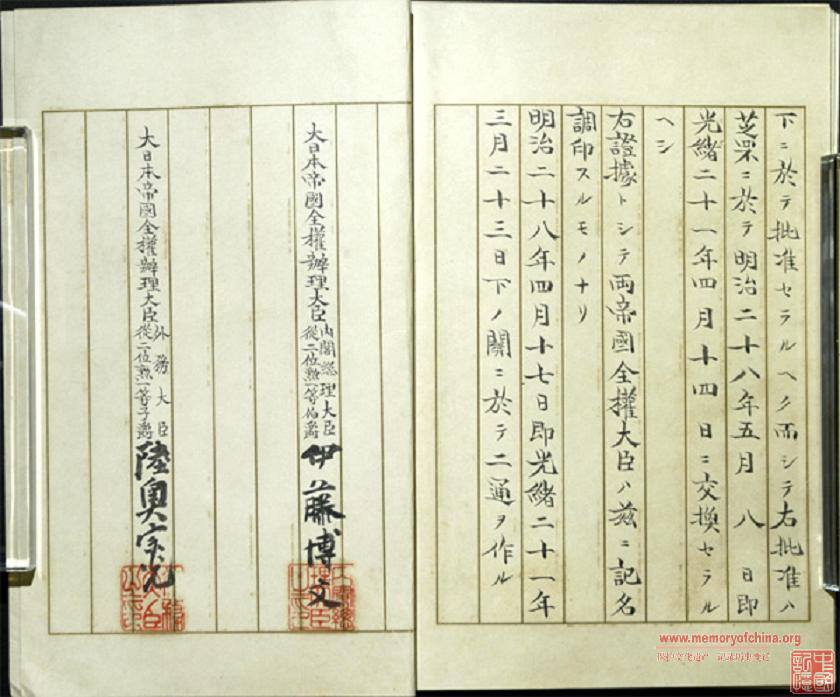 下ニ於テ批准セラルヘク而シテ右批准ハ
芝罘ニ於テ明治二十八年五月八日即
光緒二十一年四月十四日ニ交換セラル
ヘシ
右證據トシテ両帝國全權大臣ハ茲ニ記名
調印スルモノナリ
明治二十八年四月十七日即光緒二十一年
三月二十三日下ノ關ニ於テ二通ヲ作ル
大日本帝國全權辦理大臣
內閣總理大臣
從二位勲一等伯爵
伊藤博文
大日本帝國全權辦理大臣
外務大臣
從二位勲一等子爵
陸奥宗光
www.memoryofchina.org